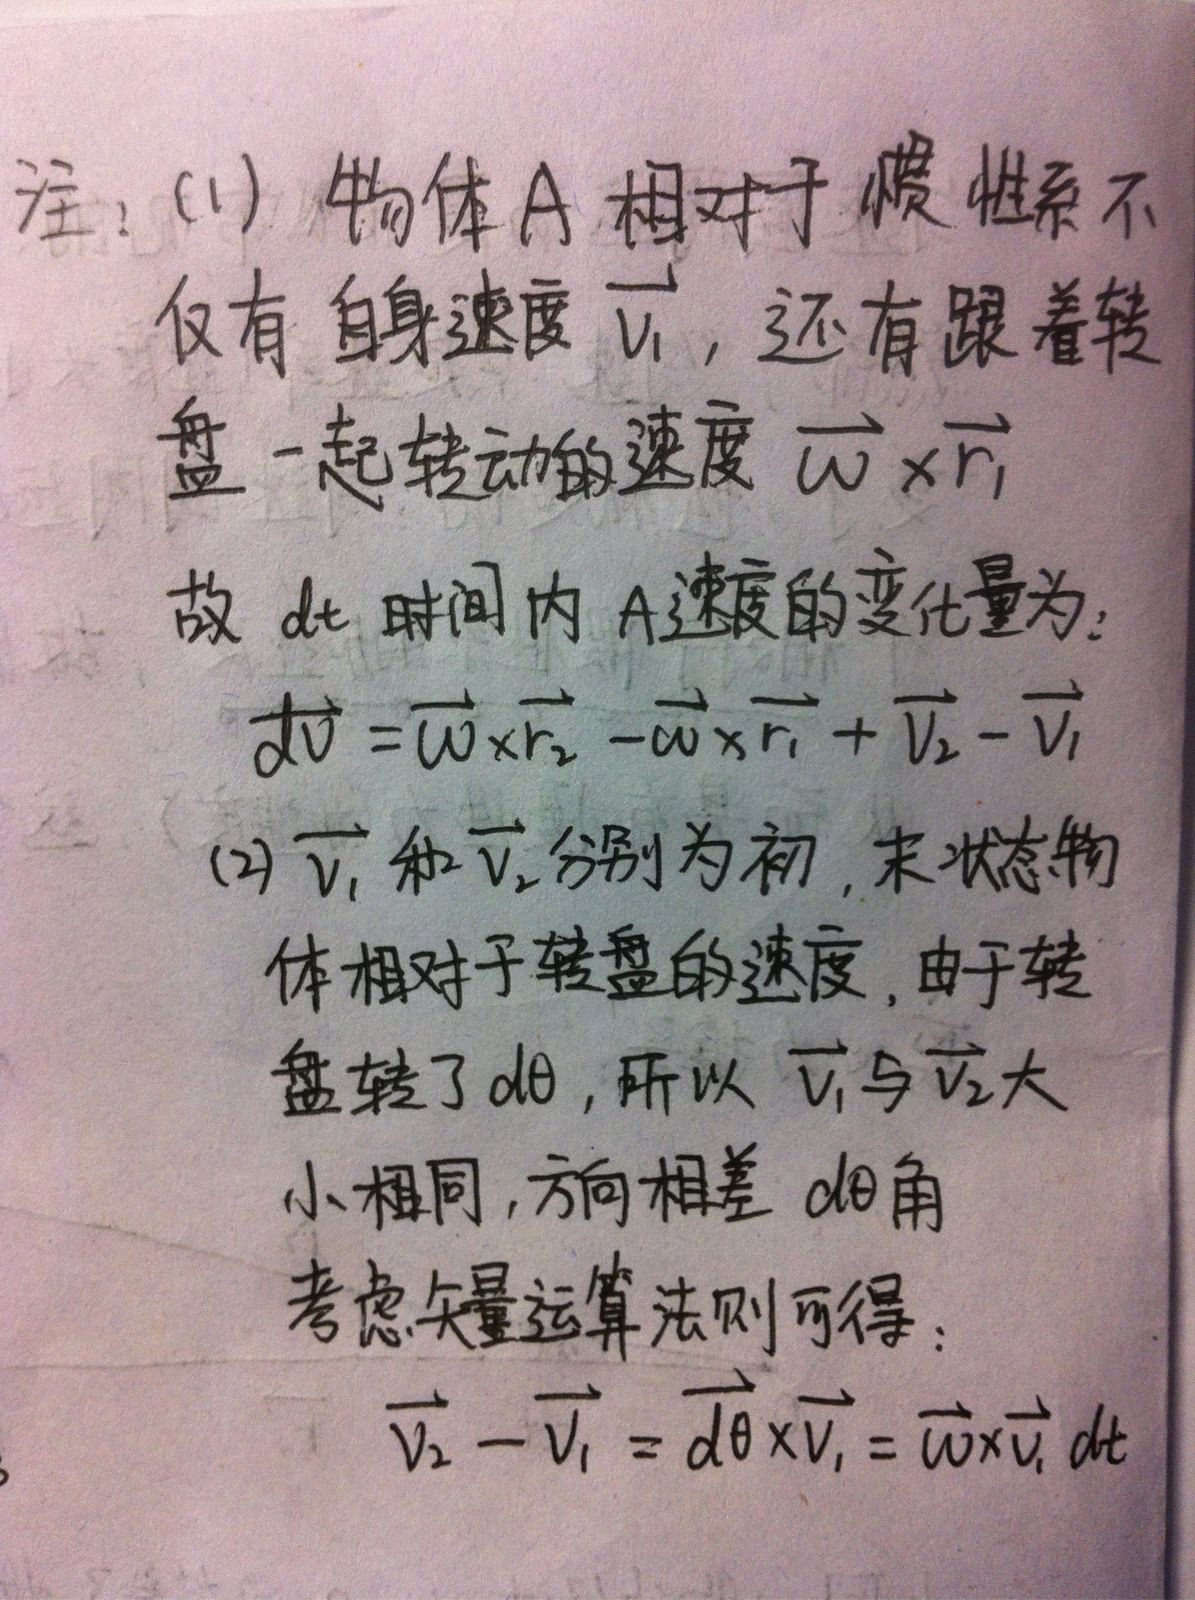 注：(1) 物体A相对于惯性系不
仅有自身速度 \vec{v_1}，还有跟着转
盘一起转动的速度 \vec{ω}×\vec{r_1}
故 dt 时间内 A速度的变化量为：
\vec{dv} = \vec{ω}×\vec{r_2} - \vec{ω}×\vec{r_1} + \vec{v_2} - \vec{v_1}
(2) \vec{v_1} 和 \vec{v_2} 分别为初，末状态物
体相对于转盘的速度，由于转
盘转了dθ，所以 \vec{v_1} 与 \vec{v_2} 大
小相同，方向相差 dθ角
考虑矢量运算法则可得：
\vec{v_2} - \vec{v_1} = \vec{dθ}×\vec{v_1} = \vec{ω}×\vec{v_1} dt